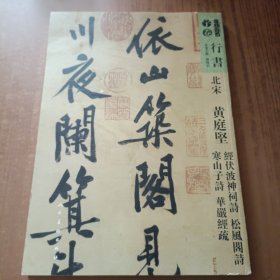 依山築閣見
川夜闌箕斗
行書
北宋
黄庭堅
經伏波神祠詩 松風閣詩
寒山子詩 華嚴經疏